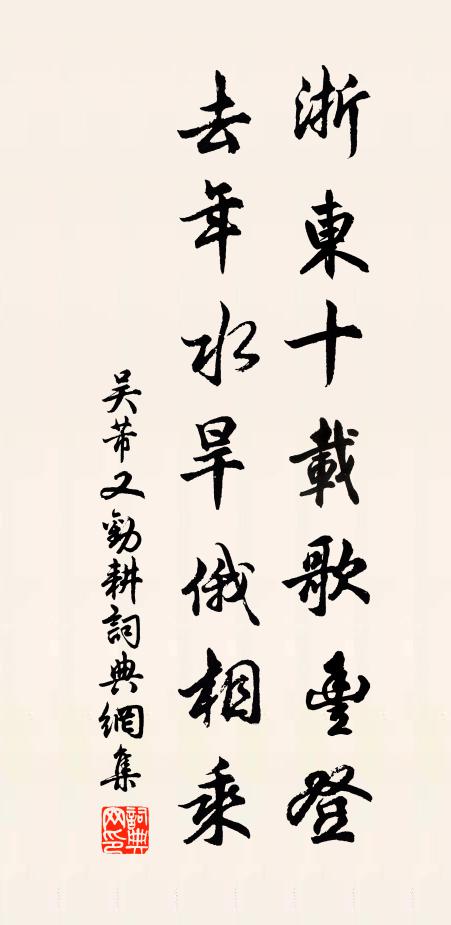 浙東十載歌豐登
去年水旱俄相乘
吴芾又勸耕詞典網集
詞典網印